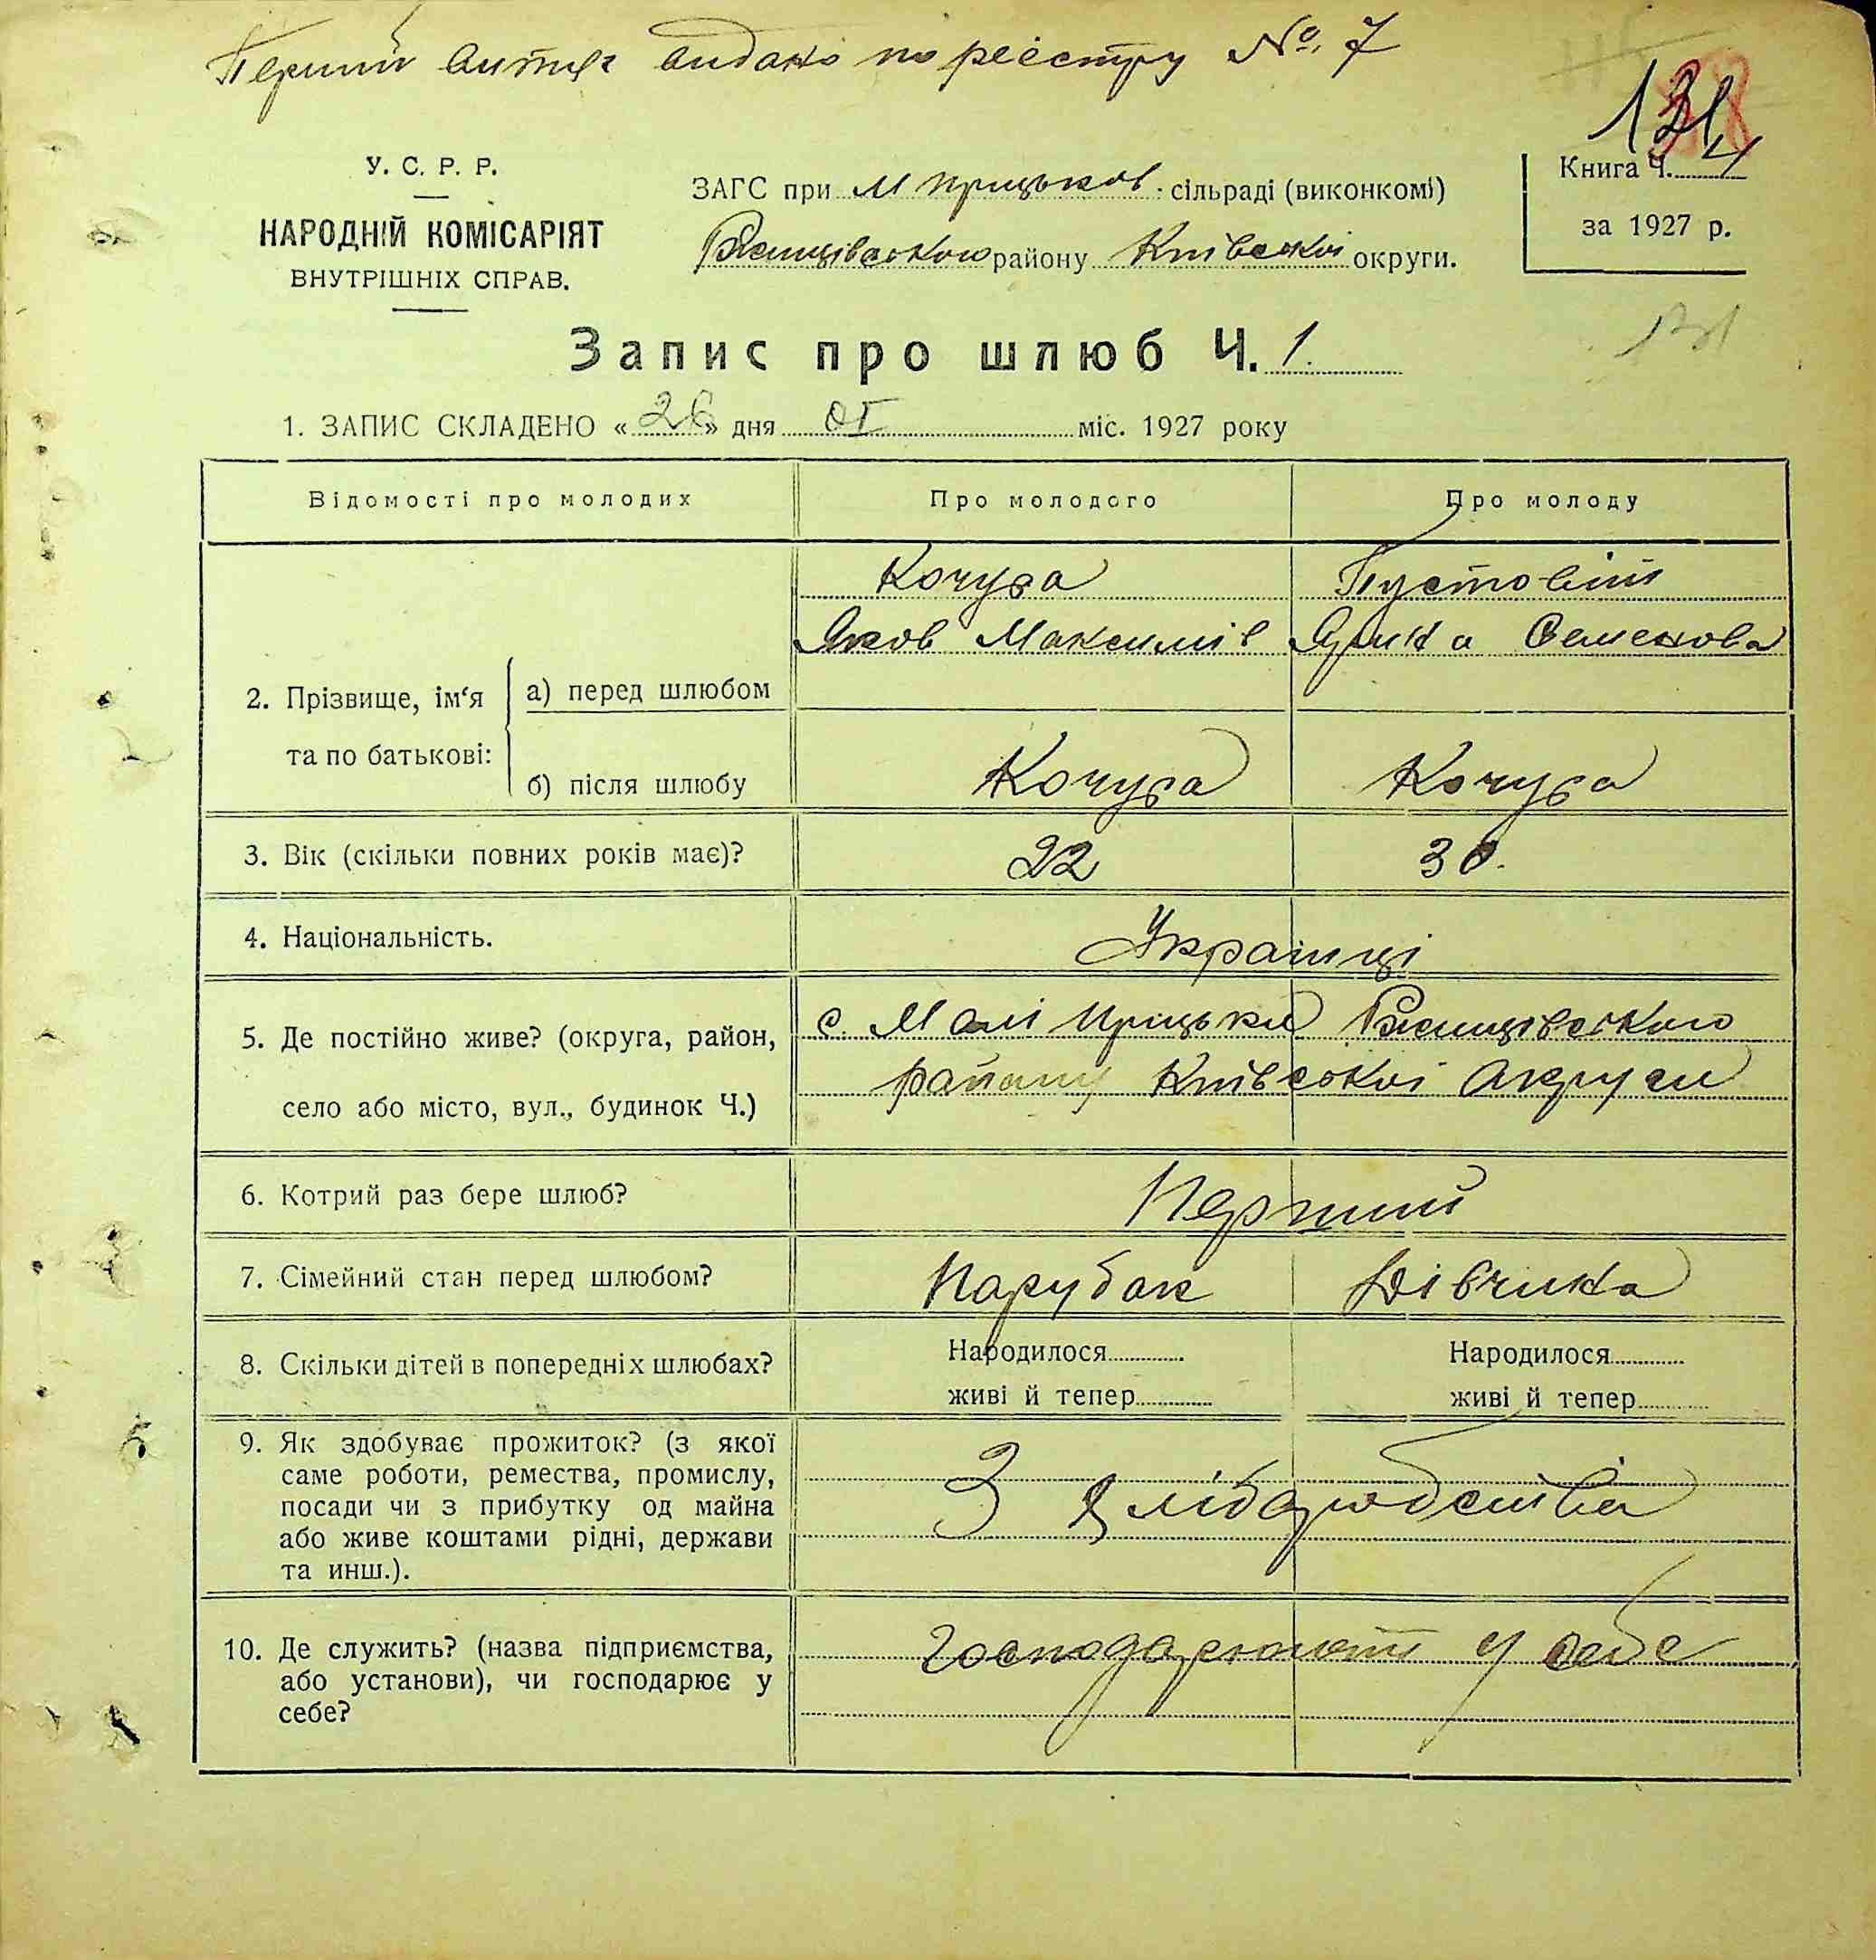 Перший витяг видано по реєстру №. 7
131
У. С. Р. Р.
НАРОДНІЙ КОМІСАРІЯТ
ВНУТРІШНІХ СПРАВ.
ЗАГС при М Прицьков. сільраді (виконкомі)
Ржищівського району Київської округи.
Книга Ч. 4
за 1927 р.
131
Запис про шлюб Ч. 1.
1. ЗАПИС СКЛАДЕНО « 26 » дня 01 міс. 1927 року
Відомості про молодих Про молодого Про молоду
Кочура Пустовіт
Яков Максимів Ярина Семенова
2. Прізвище, ім'я та по батькові:
а) перед шлюбом
б) після шлюбу Кочура Кочура
3. Вік (скільки повних років має)? 22 30.
4. Національність. Українці
5. Де постійно живе? (округа, район, с. Малі Прицьки Ржищівського
село або місто, вул., будинок Ч.) району Київської Округи
6. Котрий раз бере шлюб? Перший
7. Сімейний стан перед шлюбом? Парубак Дівчина
8. Скільки дітей в попередніх шлюбах? Народилося Народилося
живі й тепер живі й тепер
9. Як здобуває прожиток? (з якої
саме роботи, ремества, промислу,
посади чи з прибутку од майна
або живе коштами рідні, держави
та инш.).
З хліборобства
10. Де служить? (назва підприємства,
або установи), чи господарює у
себе?
Господарюють у себе